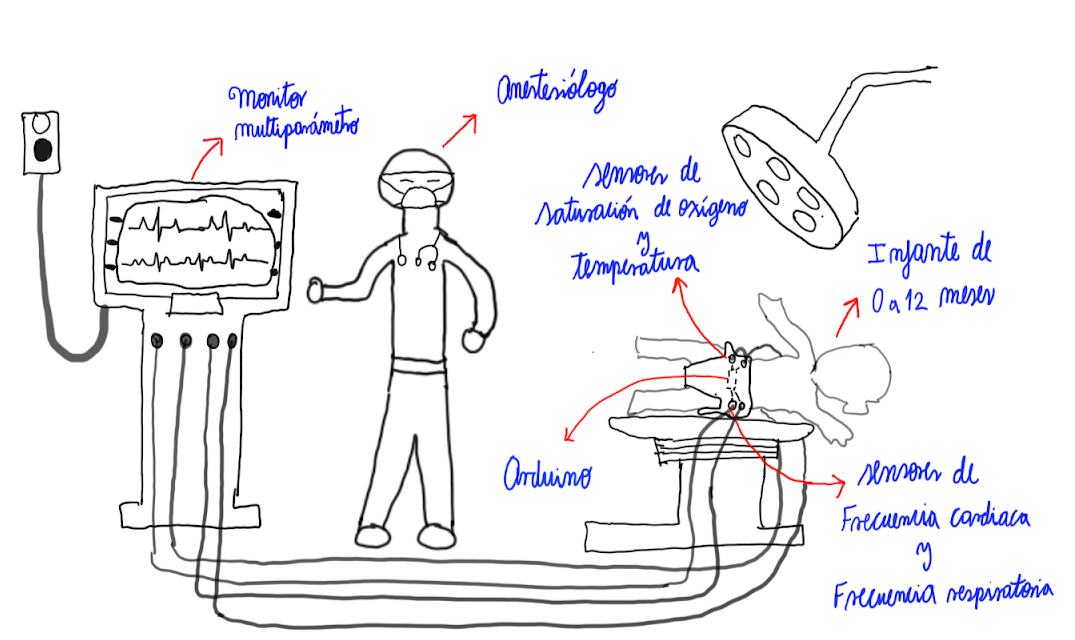 Monitor
multiparámetro
Anestesiólogo
sensores de
saturación de oxígeno
y
temperatura
Infante de
0 a 12 meses
Arduino
sensores de
Frecuencia cardiaca
y
Frecuencia respiratoria